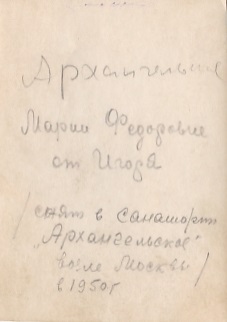 Архангельское
Марии Федоровне
от Игоря
/снят в санатории
„Архангельское"
возле Москвы/
в 1950г